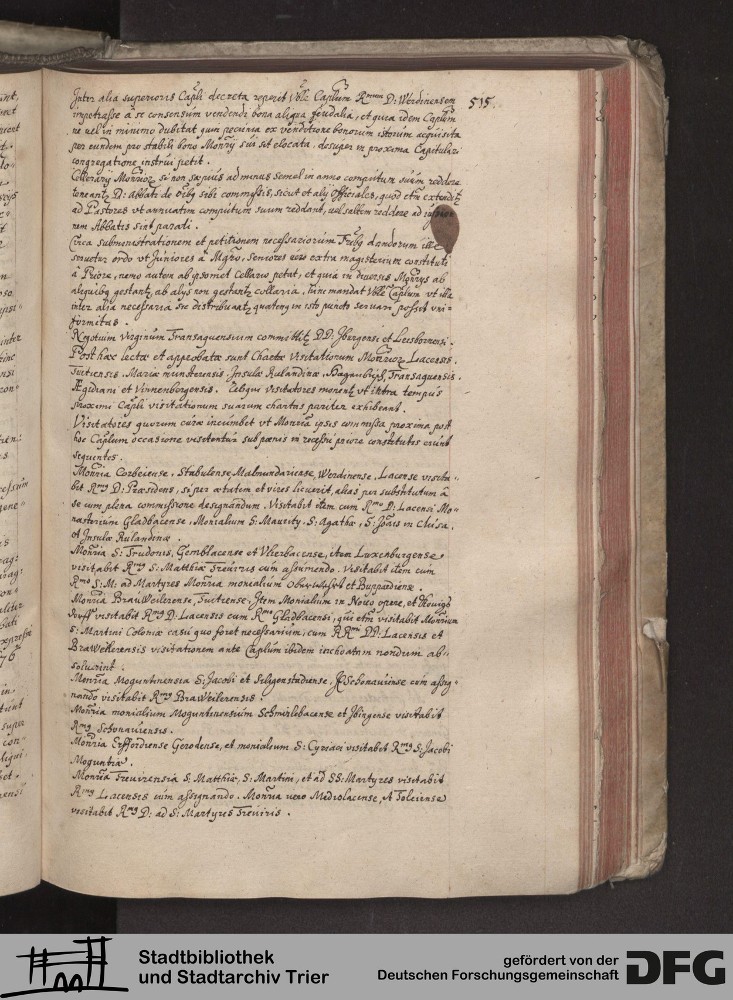 515.
Inter alia superioris Capli decreta reperit Vble Caplum Rmum D: Werdinensem
impetrasse a se consensum vendendi bona aliqua feudalia, et quia idem Caplum
ne vel in minimo dubitat quin pecunia ex venditione bonorum istorum acquisita
per eundem pro stabili bono Monrij sui sit elocata, desuper in proxima Capitulari
congregatione instrui petit.
Cellerarij Monriorum si non saepius ad minus semel in anno computum suum reddere
teneantur D: Abbati de orbus sibi commissis, sicut et alij officiales, quod etm extenditur
ad Pastores vt annuatim computum suum reddant, vel saltem reddere ad
nem Abbatis sint parati.
Circa subministrationem et petitionem necessariorum Fribus dandorum ille
servetur ordo vt Juniores a Mgro, Seniores vero extra magisterium constituti
a Priore, nemo autem ab ipsomet Cellario petat, et quia in diversis Monrijs ab
aliquibus gestantur, ab alijs non gestantur collaria, tunc mandat Vble Caplum vt illa
inter alia necessaria sic distribuantur quatenus in isto puncto servari possit uni-
formitas.
Negotium Virginum Transaquensium committitur DD: Ibergensi et Leesbornensi.
Post haec lectae et approbatae sunt Chartae Visitationum Monriorum Lacensis.
Tuitiensis. Mariae munsterensis. Insulae Rulandinae. Transaquensis.
Ægidiani et Vinnenborgensis. Reliqui visitatores monentur vt intra tempus
proximi Capli visitationum suarum chartas pariter exhibeant.
Visitatores quorum curae incumbet vt Monria ipsis commissa proxima post
hoc Caplum occasione visitentur sub poenis in recessu priore constitutis erunt
sequentes.
Monria Corbeiense, Stabulense, Malmundariense, Werdinense, Lacense visita-
bit Rmus D: Praesidens, si per aetatem et vires licuerit, alias per substitutum a
se cum plena commissione designandum. Visitabit item cum Rmo D: Lacensi Mo-
nasterium Gladbacense, Monialium S: Mauritij, S: Agathae, S: Joais in clusa,
et Insulae Rulandinae.
Monria S: Trudonis, Gemblacense et Vlierbacense, item Luxenburgense
visitabit Rmus S: Matthiae Treviris cum assumendo. Visitabit item cum
Rmo S: M: ad Martyres Monria monialium et Buppardiense.
Monria Brauweilerense, Tuitiense, Item Monialium in Novo opere, et
visitabit Rmus D: Lacensis cum Rmo Gladbacensi, qui etm visitabit Monrium
S: Martini Coloniae casu quo foret necessarium, cum RRmi DD: Lacensis et
Braweilerensis visitationem ante Caplum ibidem inchoatam nondum ab-
soluerint.
Monria Moguntinensia S: Jacobi et Seligenstadiense, Schonaviense cum assig-
nando visitabit Rmus BraWeilerensis.
Monria monialium Moguntinensium Schmirlebacense et Ibingense visitabit
Rmus Schonaviensis.
Monria Erffordiense Gerodense, et monialium S: Cyriaci visitabit Rmus S: Jacobi
Moguntiae.
Monria Treuirensia S: Matthiae, S: Martini, et ad SS: Martyres visitabit
Rmus Lacensis cum assignando. Monria uero Mediolacense, et Toleiense
visitabit Rmus D: ad S: Martyres Treuiris.
Stadtbibliothek
und Stadtarchiv Trier
gefördert von der
Deutschen Forschungsgemeinschaft
DFG